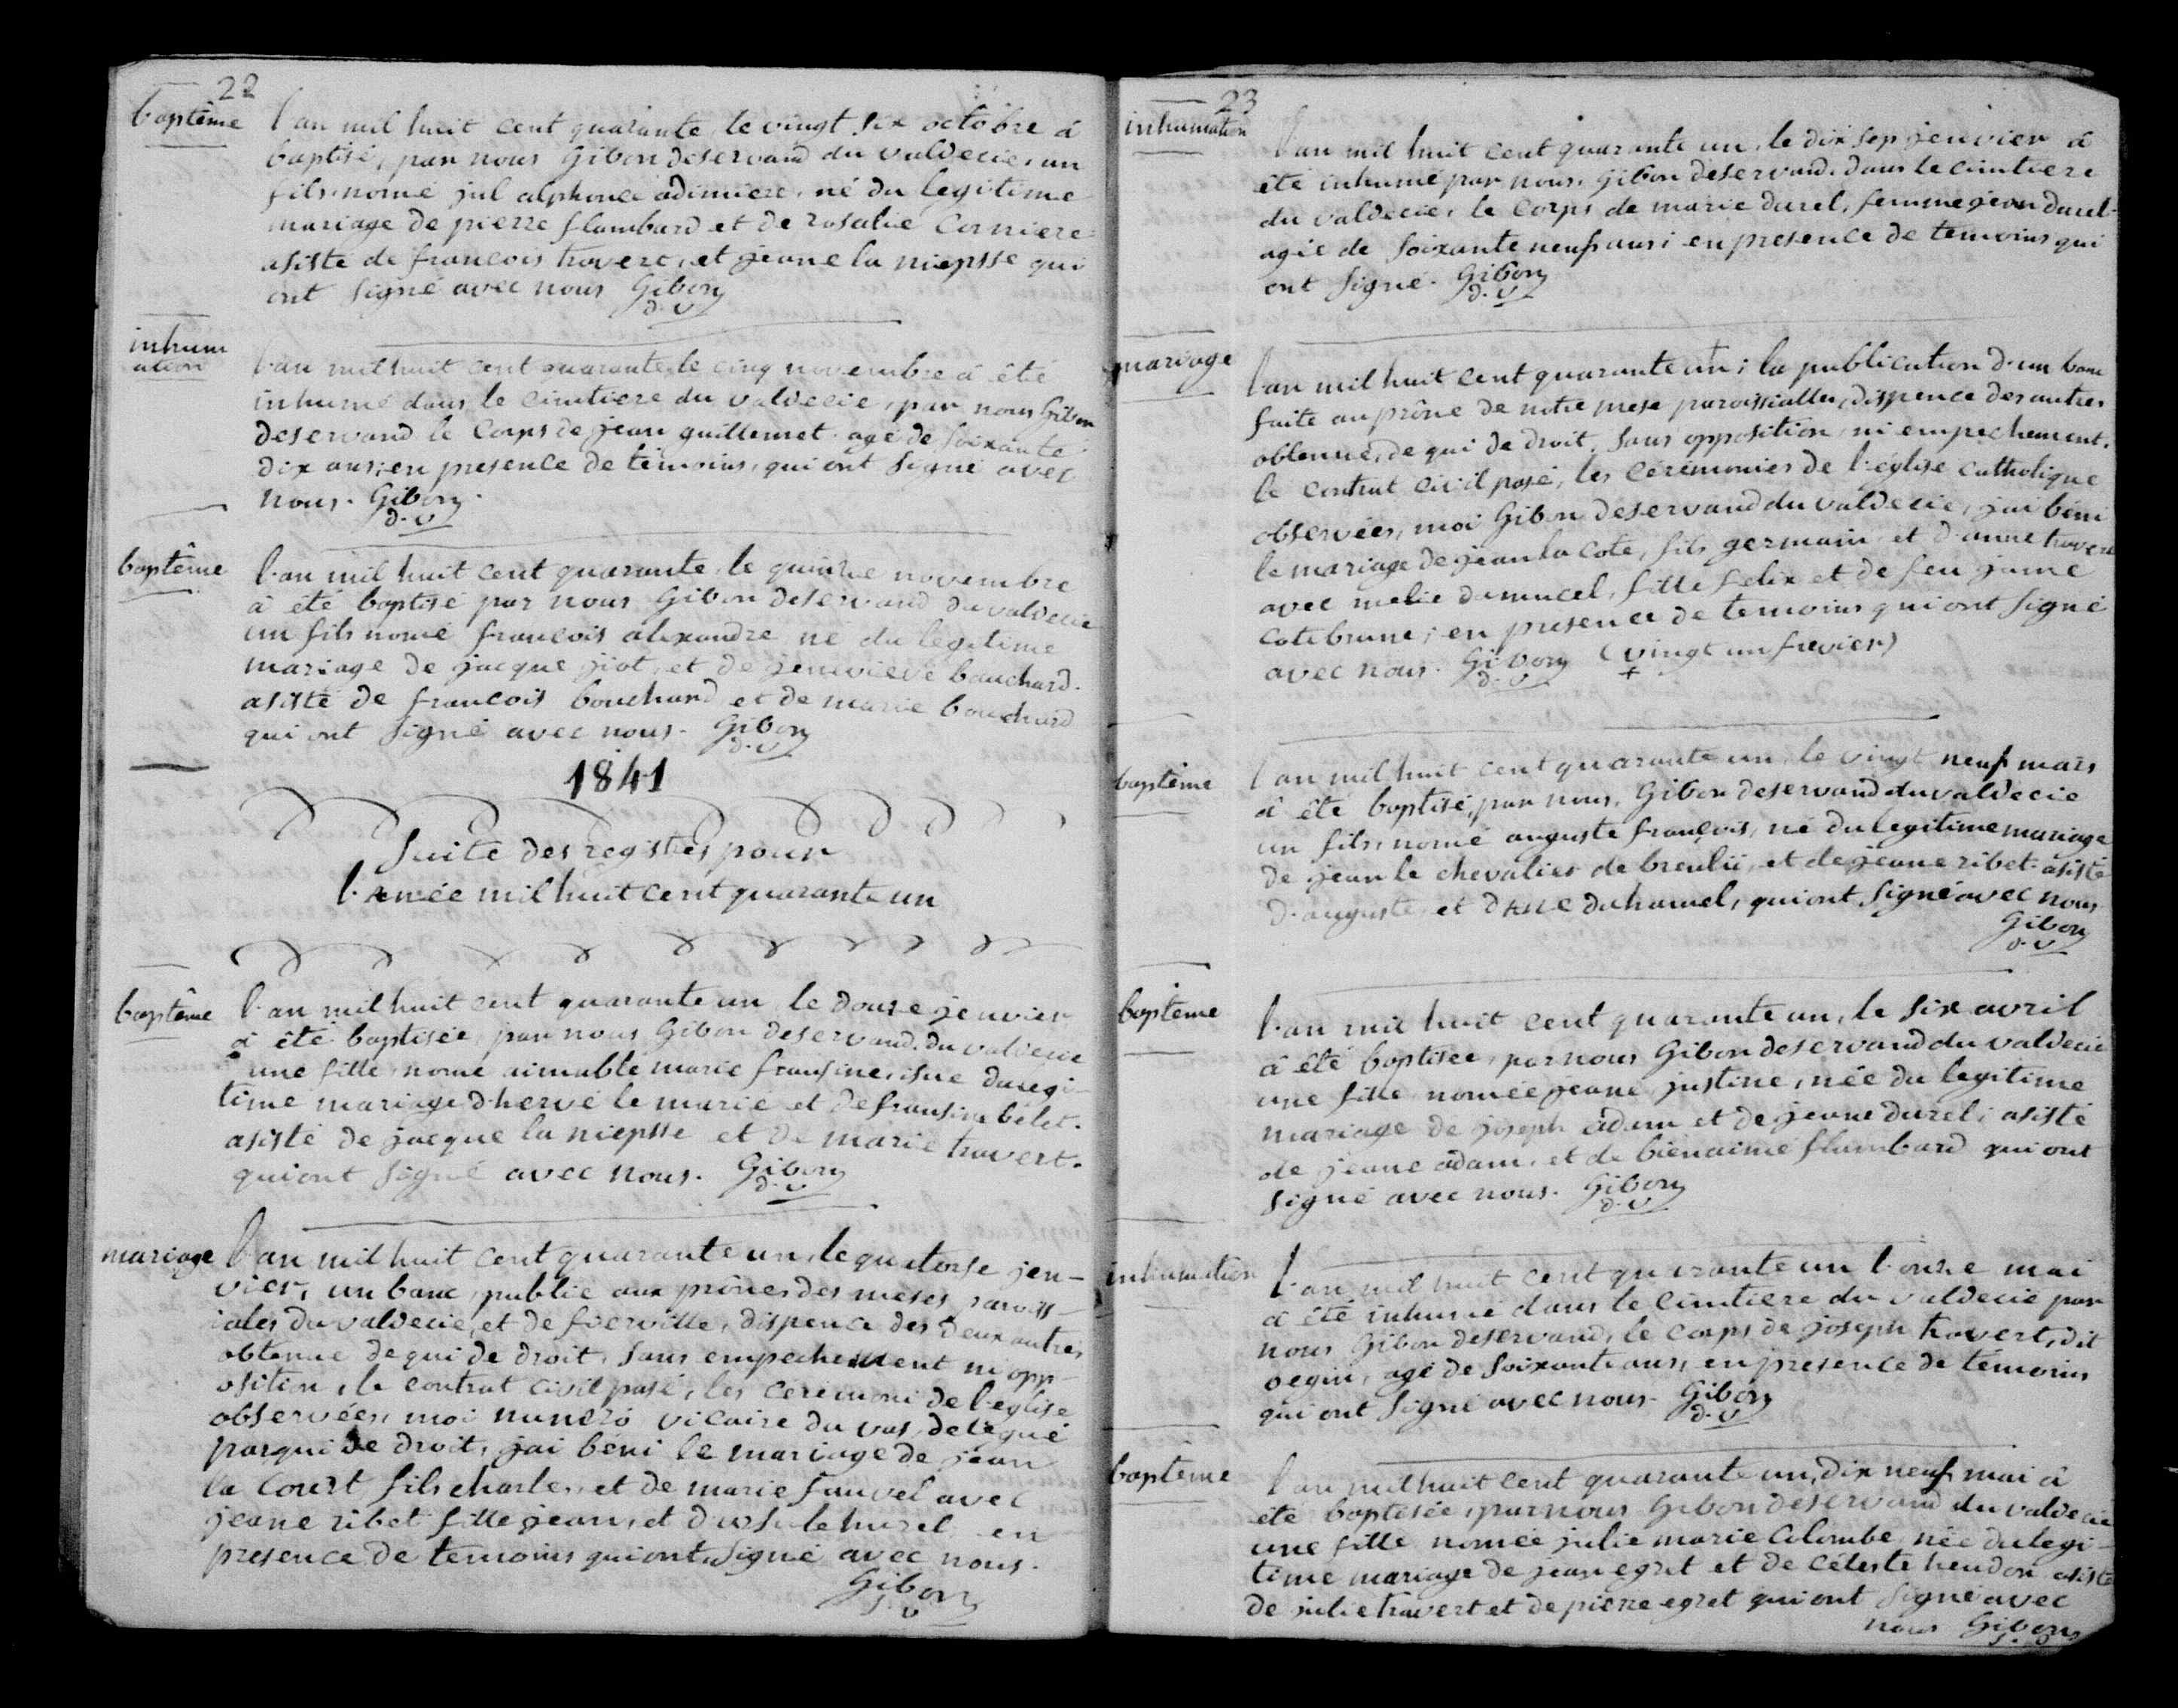 22
baptême
l'an mil huit cent quarante, le vingt six octobre à
baptisé, par nous Gibon deservand du valdecie, un
fils nomé jul alphonce adimiere, né du legitime
mariage de pierre flambard et de rosalie Corniere
asisté de francois travert, et jeane la niepsse qui
ont signé avec nous Gibon
d. v
inhum
ation
l'an mil huit cent quarante, le cinq novembre à été
inhumé dans le cimtiere du valdecie, par nous Gibon
deservand le Corps de jean guillemet agé de soixante
dix ans; en presence de temoins, qui ont signé avec
nous. Gibon.
d. v
baptême
l'an mil huit cent quarante, le quinze novembre
à été baptisé par nous Gibon deservand du valdecie
un fils nomé francois alexandre né du légitime
mariage de jacque jiot, et de jenvieve bouchard.
asisté de francois bouchard et de marie bouchard
qui ont signé avec nous. Gibon
d. v
1841
Suite des registres pour
l'année mil huit cent quarante un
baptême
l'an mil huit cent quarante un le douse jenvier
à été baptisée, par nous Gibon deservand du valdecie
une fille, nomé aimable marie fransine, isue du legi-
time mariage d'hervé le marie et de fransine bélet.
asisté de jacque la niepsse et de marie travert.
qui ont signé avec nous. Gibon
d. v
mariage
l'an mil huit cent quarante un, le quatorse jen-
vier, un banc, publié aux prônes des meses paroiss-
iales du valdecie, et de fierville, dispence des deux autres
obtenue de qui de droit, sans empechement ni opp-
osition, le contrat civil pasé, les ceremoni de l'eglise
observées, moi numero vicaire du vas, delegué
par qui de droit, jai béni le mariage de jean
la Court fils charle, et de marie fauvel avec
jeane ribet fille jean, et d'ursule hurel en
presence de temoins qui ont signé avec nous.
Gibon
d. v
23
inhumation
l'an mil huit cent quarante un, le dix sep jenvier à
été inhumé par nous, Gibon deservand, dans le cimtiere
du valdecie, le Corps de marie durel, femme jean durel
agée de soixante neuf ans; en presence de temoins qui
ont signé. Gibon
d. v
mariage
l'an mil huit cent quarante un; la publication d'un banc
faite au prône de notre mese paroissialle, dispence des autres
obtenue, de qui de droit, sans opposition, ni empechement.
le contrat civil pasé, les cérémonies de l'église catholique
observées, moi Gibon deservand du valdecie, jai béni
le mariage de jean la Cote, fils germain, et d'anne travert
avec melie dumucel, fille felix et de feu jeane
cotebrune; en presence de temoins qui ont signé
avec nous. Gibon (vingt un fevrier)
d. v +
baptême
l'an mil huit cent quarante un, le vingt neuf mars
à été baptisé, par nous, Gibon deservand du valdecie
un fils, nomé auguste françois, né du legitime mariage
de jean le chevalier de breulii, et de jeane ribet. asisté
d'auguste, et d'Ane duhamel, qui ont signé avec nous
Gibon
d. v
baptême
l'an mil huit cent quarante un, le six avril
à été baptisée, par nous Gibon deservand du valdecie
une fille nomée jeane justine, née du legitime
mariage de joseph adam et de jeane durel; asisté
de jeane adam, et de bienaimé flambard qui ont
signé avec nous. Gibon
d. v
inhumation
l'an mil huit cent quarante un l'onze mai
à été inhumé dans le cimtiere du valdecie par
nous Gibon deservand, le corps de joseph travert, dit
begin, agé de soixante ans, en presence de temoins
qui ont signé avec nous. Gibon
d. v
baptême
l'an mil huit cent quarante un, dix neuf mai à
été baptisée, par nous Gibon deservand du valdecie
une fille nomée julie marie Colombe née du legi-
time mariage de jean egret et de céleste heudon asisté
de julie travert et de pierre egret qui ont signé avec
nous Gibon
d. v